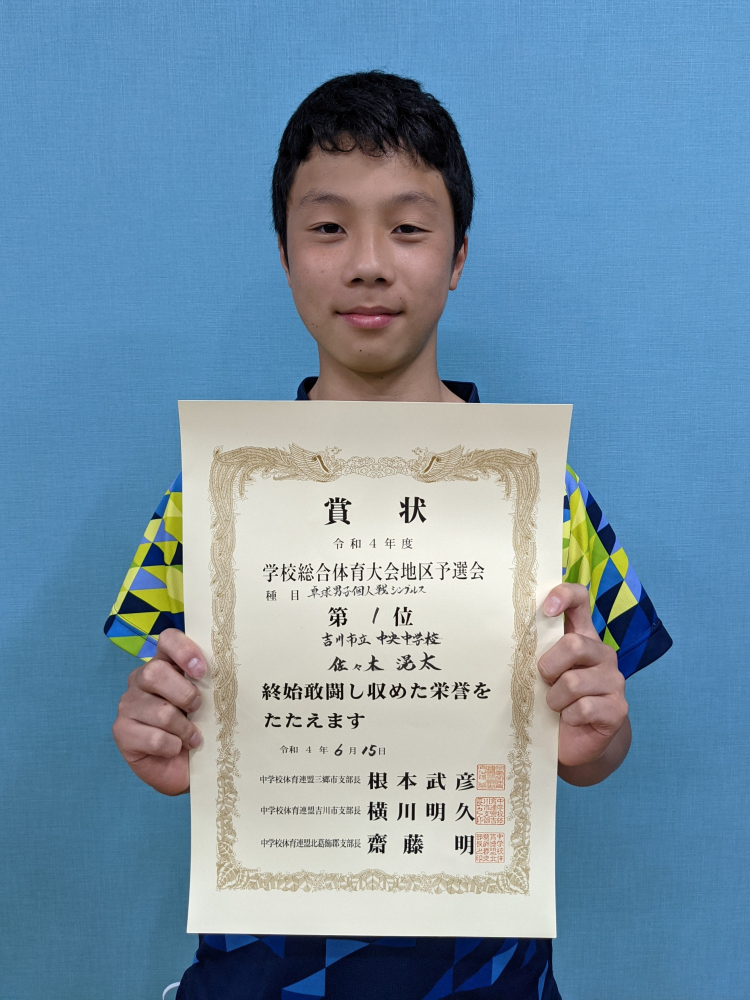 賞状
令和4年度
学校総合体育大会地区予選会
種目 卓球男子個人戦シングルス
第1位
吉川市立中央中学校
佐々木滉太
終始敢闘し収めた栄誉を
たたえます
令和4年6月15日
中学校体育連盟三郷市支部長 根本武彦
中学校体育連盟吉川市支部長 横川明久
中学校体育連盟北葛飾郡支部長 齋藤明